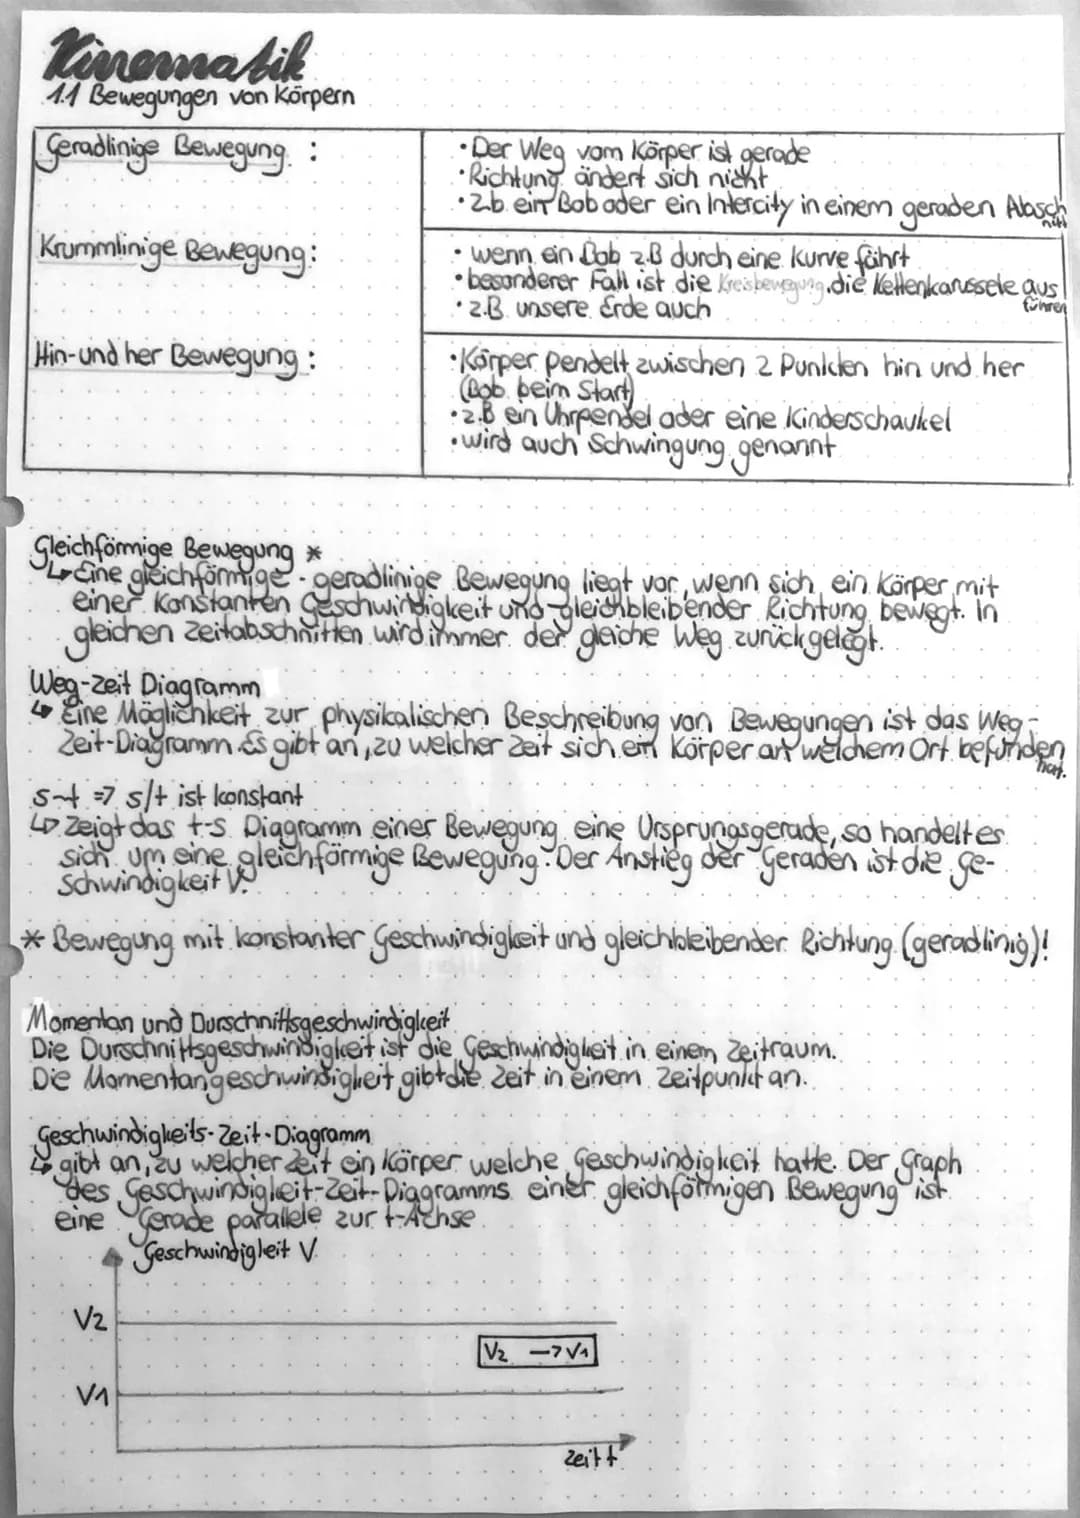 Kinematik
1.1 Bewegungen von Körpern
Geradlinige Bewegung :
• Der Weg vom Körper ist gerade
• Richtung ändert sich nicht
• z.b. ein Bob oder ein Intercity in einem geraden Absch
nitt
Krummlinige Bewegung :
• wenn ein Bob z.B durch eine Kurve fährt
• besonderer Fall ist die Kreisbewegung, die Kettenkarussele aus
führen
• z.B. unsere Erde auch
Hin-und her Bewegung :
• Körper pendelt zwischen 2 Punkten hin und her
(Bob beim Start)
• z.B ein Uhrpendel oder eine Kinderschaukel
• wird auch Schwingung genannt
Gleichförmige Bewegung *
↳ Eine gleichförmige - geradlinige Bewegung liegt vor, wenn sich ein Körper mit
einer Konstanten Geschwindigkeit und gleichbleibender Richtung bewegt. In
gleichen Zeitabschnitten wird immer der gleiche Weg zurückgelegt.
Weg-Zeit Diagramm
↳ Eine Möglichkeit zur physikalischen Beschreibung von Bewegungen ist das Weg-
Zeit-Diagramm. Es gibt an, zu welcher Zeit sich ein Körper an welchem Ort befunden
hat.
s~t => s/t ist konstant
↳ Zeigt das t-s Diagramm einer Bewegung eine Ursprungsgerade, so handelt es
sich um eine gleichförmige Bewegung. Der Anstieg der Geraden ist die Ge-
schwindigkeit V.
* Bewegung mit konstanter Geschwindigkeit und gleichbleibender Richtung (geradlinig)!
Momentan und Durschnittsgeschwindigkeit
Die Durschnittsgeschwindigkeit ist die Geschwindigkeit in einem Zeitraum.
Die Momentangeschwindigkeit gibt die Zeit in einem Zeitpunkt an.
Geschwindigkeits-Zeit-Diagramm
↳ gibt an, zu welcher Zeit ein Körper welche Geschwindigkeit hatte. Der Graph
des Geschwindigkeit-Zeit-Diagramms einer gleichförmigen Bewegung ist
eine Gerade parallele zur t-Achse
Geschwindigkeit V
V2
V2 -> V1
V1
Zeit t